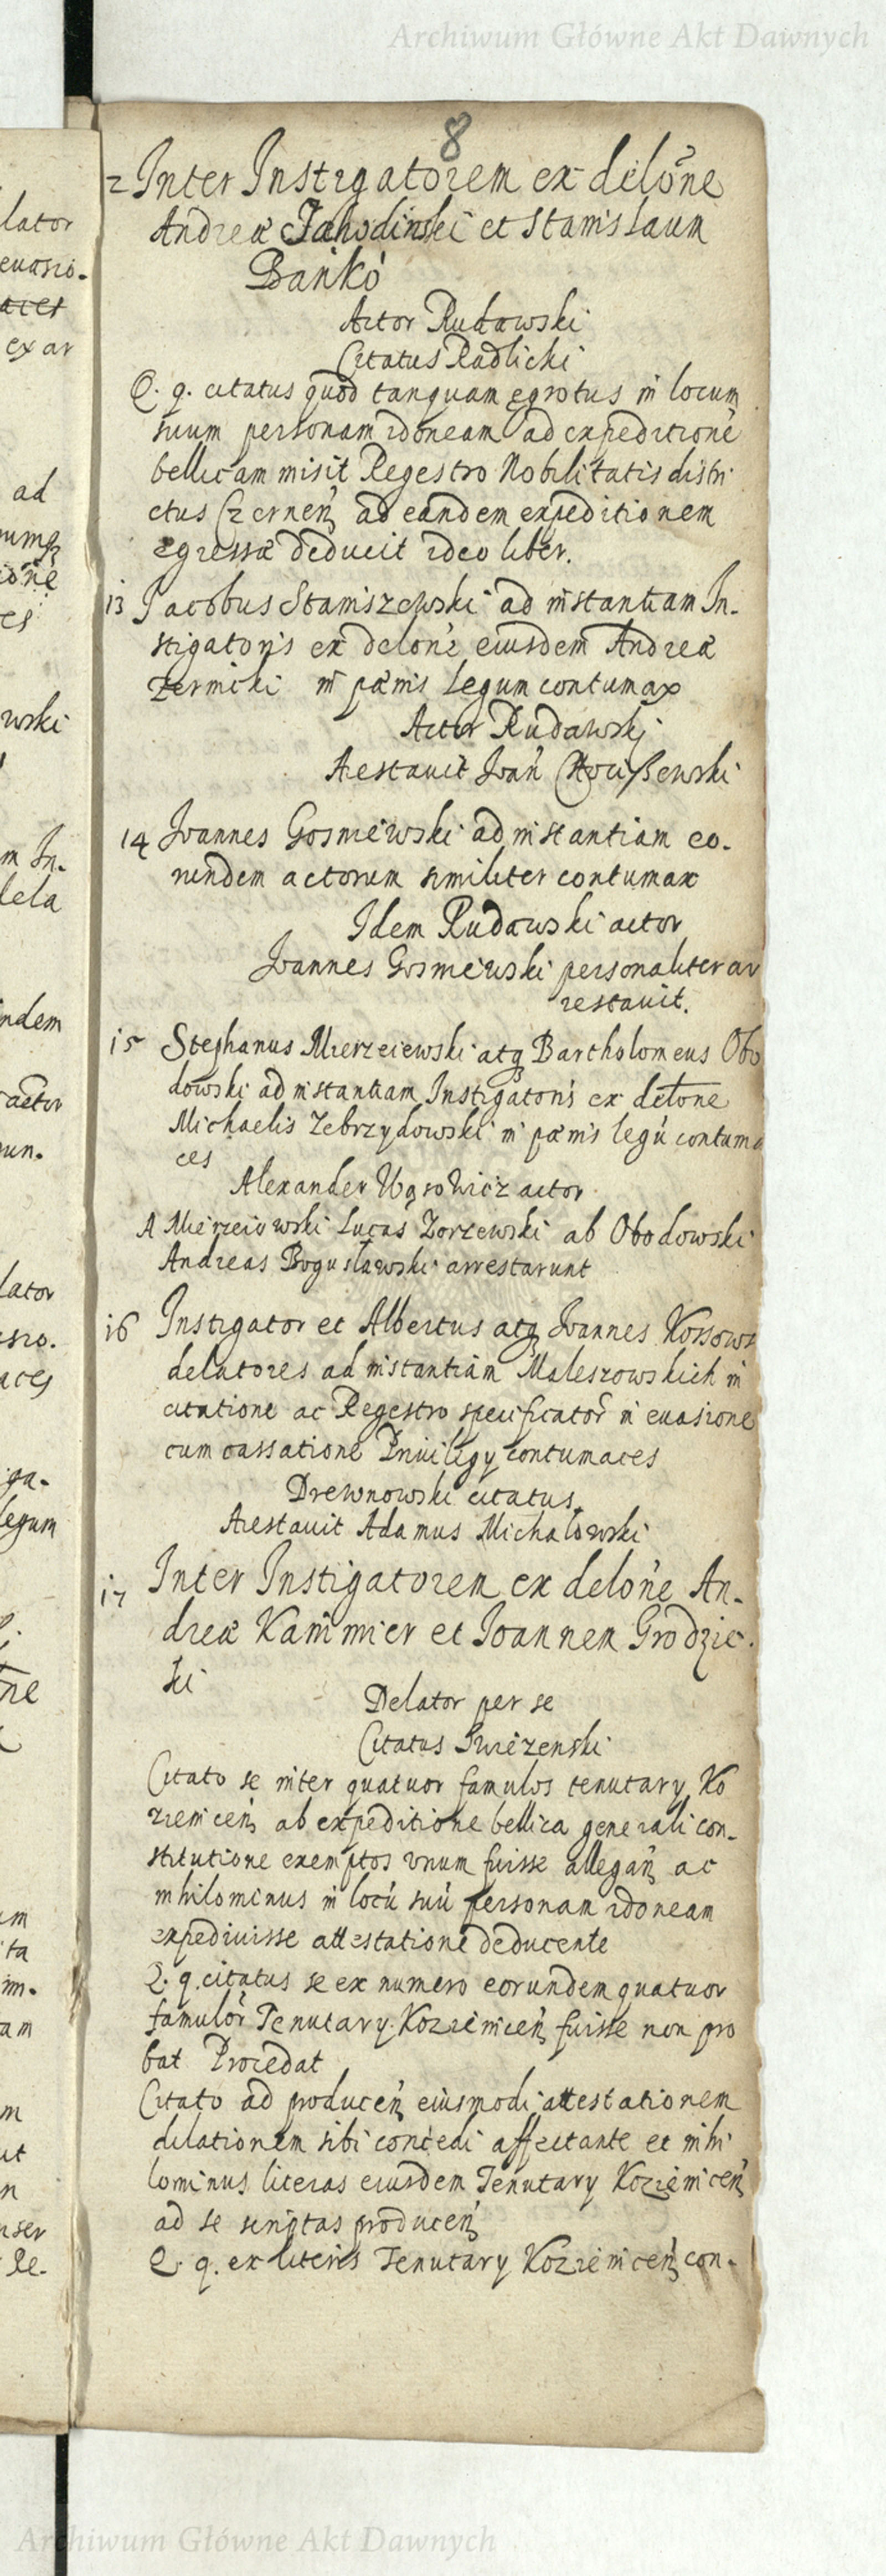 Archiwum Główne Akt Dawnych
8
2 Inter Instigatorem ex delõne
Andreæ Jahodinski et Stanislaum
Bańko
Actor Rudawski
Citatus Radlicki
Q. q. citatus quod tanquam egrotus in locum
suum personam idoneam ad expeditionē
bellicam misit Regestro Nobilitatis distri
ctus Czernen̄ ad eandem expeditionem
egressæ deducit ideo liber.
13 Jacobus Staniszewski ad instantiam In-
stigatoris ex delone eiusdem Andreæ
in pænis Legum contumax
Actor Rudawski
Arestavit Joan̄
14 Joannes Gosniewski ad instantiam eo-
rundem actorum similiter contumax
Idem Rudawski actor
Joannes Gosniewski personaliter ar
restavit.
15 Stephanus Mierzeiewski atq Bartholomeus Obo
dowski ad instantiam Instigatoris ex delone
Michaelis Zebrzydowski in pænis legū contuma
ces
Alexander Ugrowicz actor
A Mierzeiowski Lucas Zorzewski ab Obodowski
Andreas Bogusławski arrestarunt
16 Instigator et Albertus atq Joannes Kossows
delatores ad instantiam Maleszowskich in
citatione ac Regestro specificator̄ in euasione
cum cassatione Priuilegy contumaces
Drewnowski citatus
Arestauit Adamus Michalowski
17 Inter Instigatorem ex delone An-
dreæ Kammier et Joannem Grodzic-
ki
Delator per se
Citatus
Citato se inter quatuor famulos tenutary Ko
zienicen̄ ab expeditione bellica generali con-
stitutione exemptos vnum fuisse allegan̄ ac
nihilominus in locū suū personam idoneam
expediuisse attestatione deducente
Q. q. citatus se ex numero eorundem quatuor
famulor̄ Tenutary Kozienicen̄ fuisse non pro
bat Procedat
Citato ad producen̄ eiusmodi attestationem
dilationem sibi concedi affectante et nihi
lominus literas eiusdem Tenutary Kozienicen̄
ad se scriptas producen̄
Q. q. ex literis Tenutary Kozienicen̄ con-
Archiwum Główne Akt Dawnych